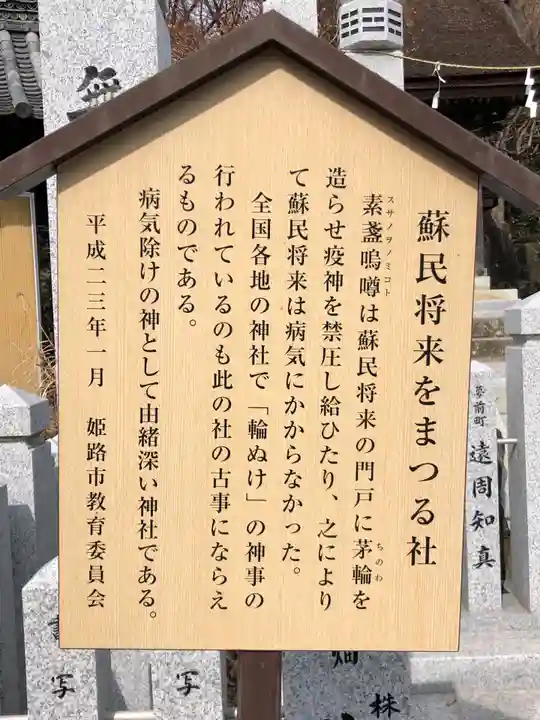 蘇民将来をまつる社
素盞嗚噂は蘇民将来の門戸に茅輪を
スサノヲノミコト
ちのわ
造らせ疫神を禁圧し給ひたり、之により
て蘇民将来は病気にかからなかった。
全国各地の神社で「輪ぬけ」の神事の
行われているのも此の社の古事にならえ
るものである。
病気除けの神として由緒深い神社である。
平成二三年一月　姫路市教育委員会
夢前町
遠周知真
株
写
写